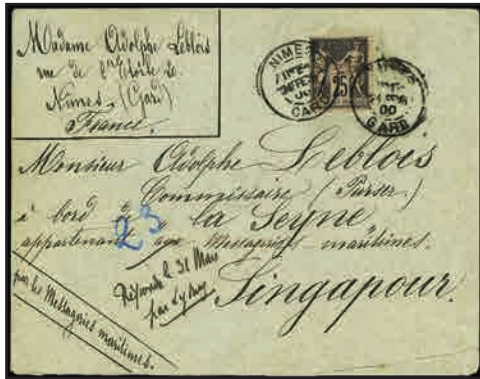 Madame Adolphe Leblois
rue de l'Etoile 2
Nimes. (Gard)
France.
NIMES
GARD
25
NIMES
00
GARD
Monsieur Adolphe Leblois
Commissaire (Purser.)
à bord de la Seyne
appartenant aux Messageries maritimes.
23
Singapour.
Répondu le 31 Mars
par Sydney
par les Messageries maritimes.